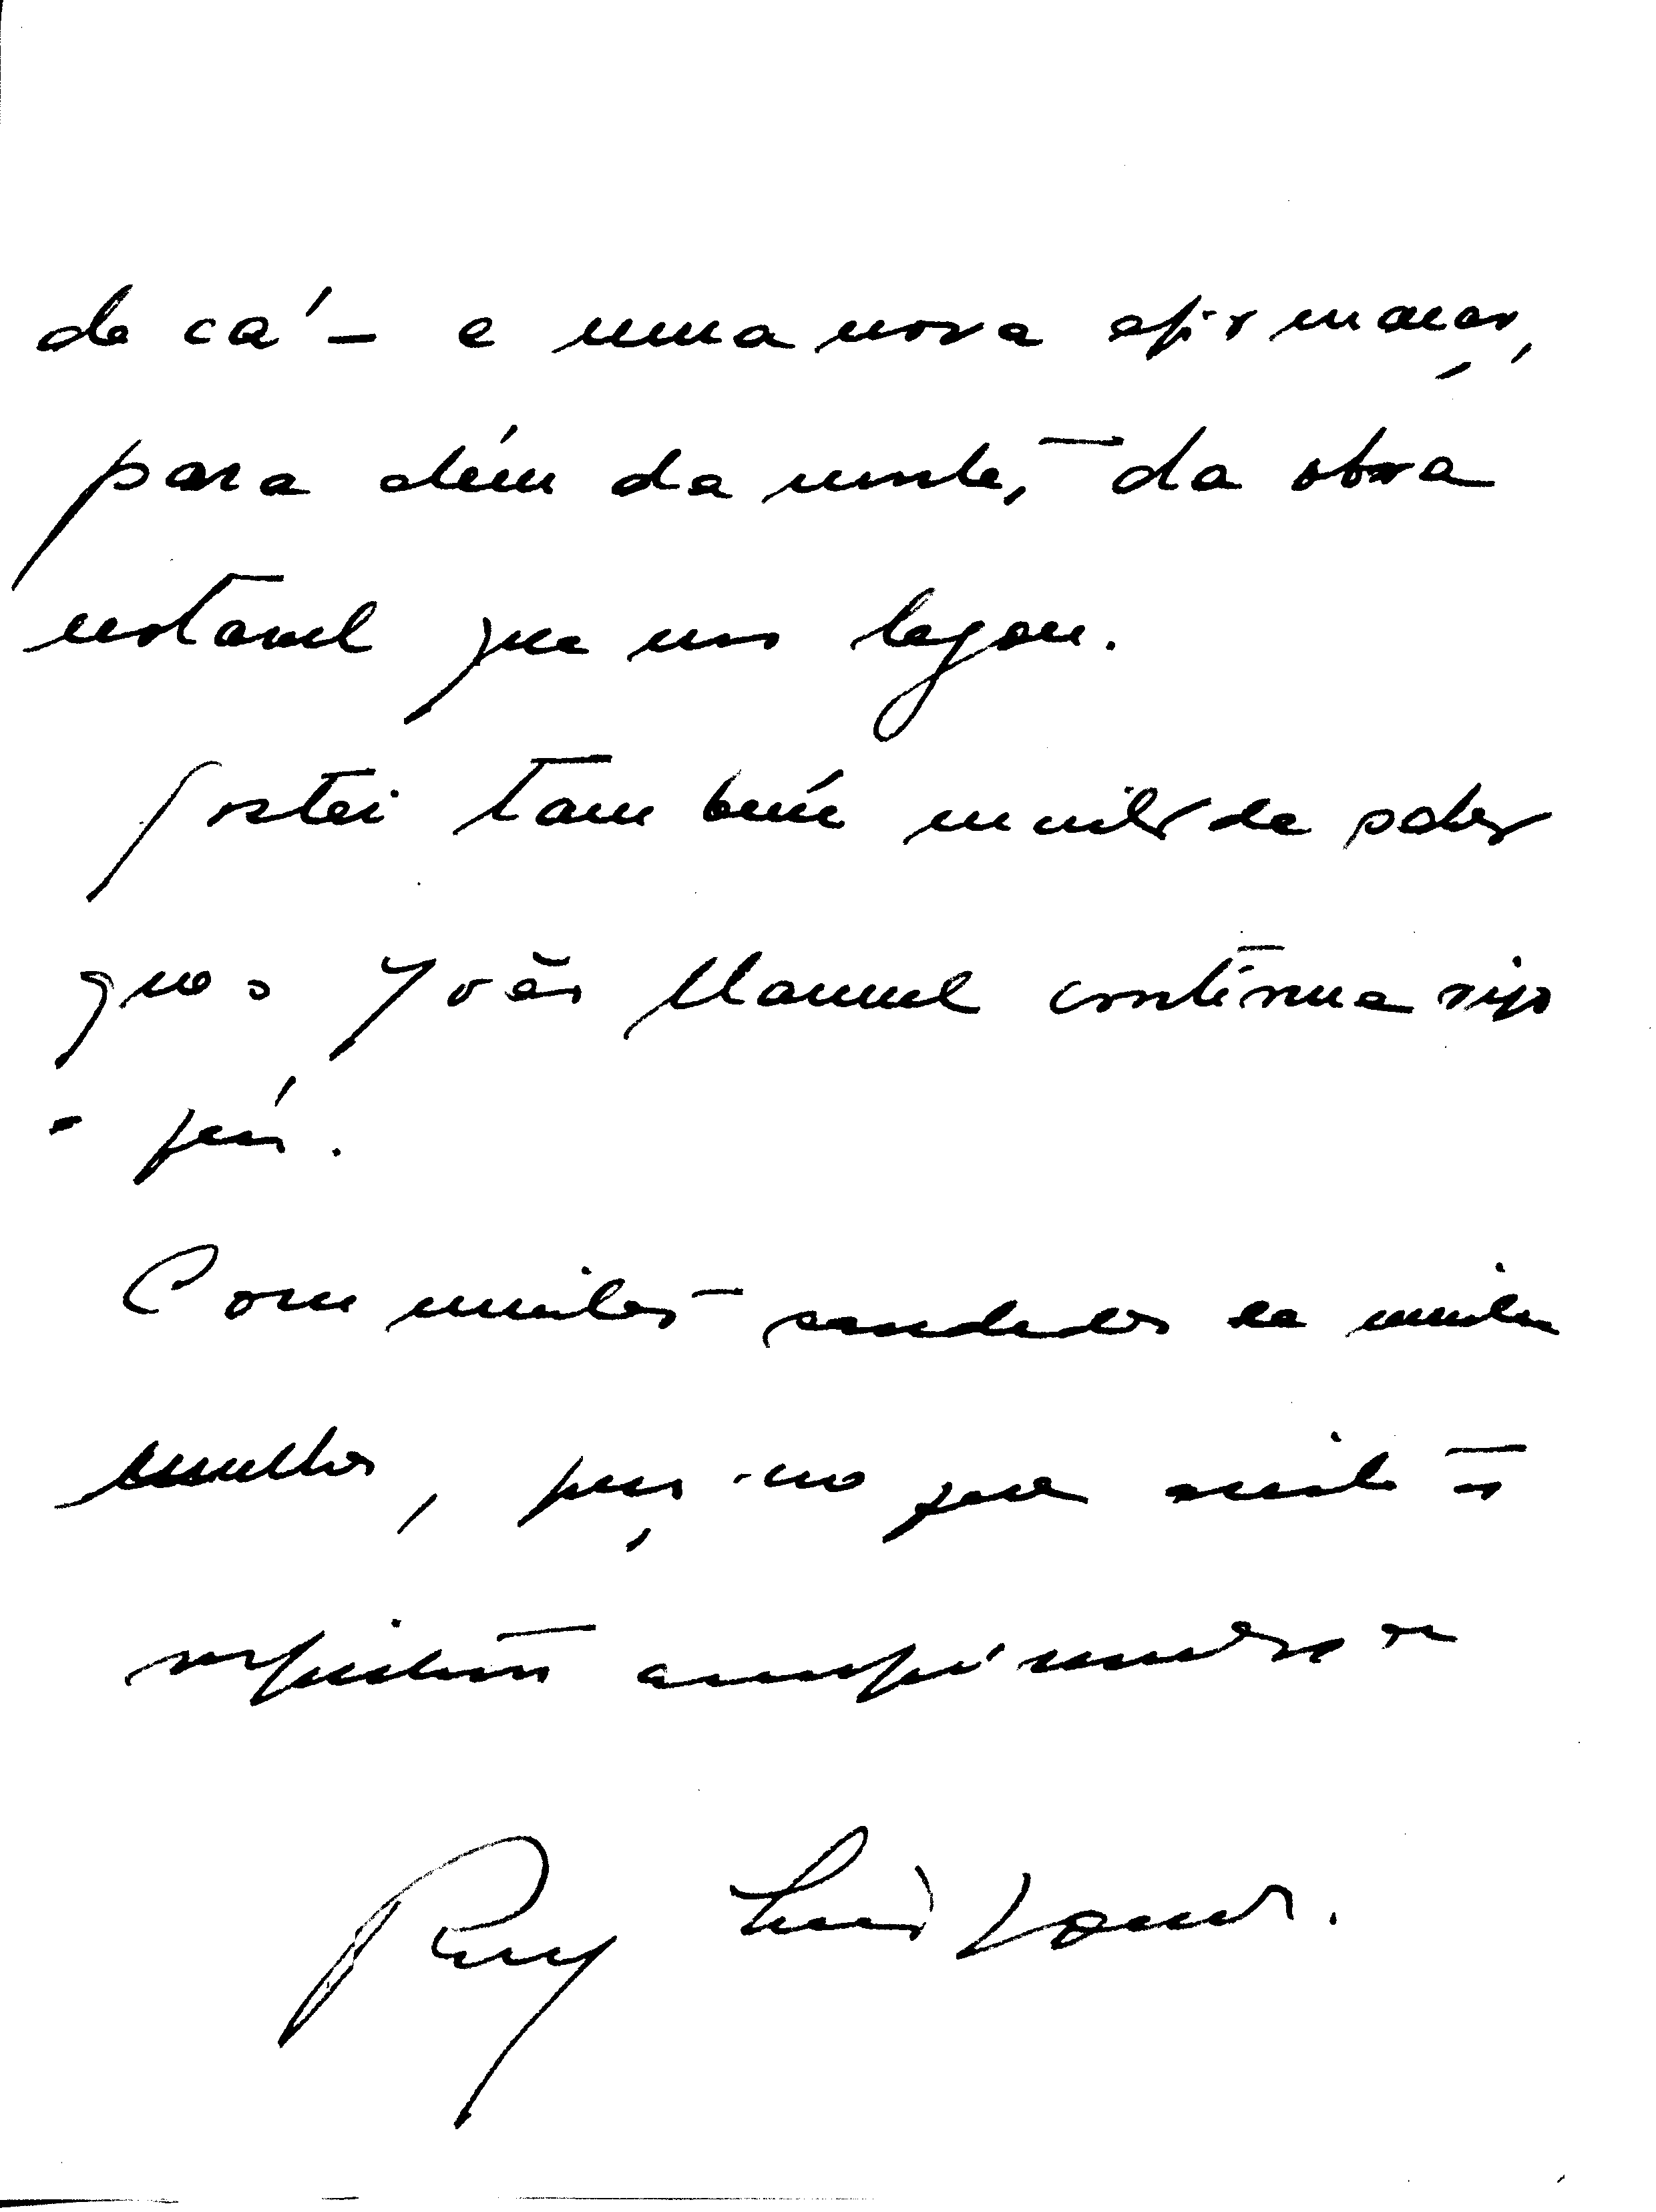 de cá — e uma nova afirmação,
para além da morte, da obra
notavel que nos legou.
Gostei também muito de saber
que o João Manuel continua rijo
e fero.
Com muitas saudades de minha
mulher, peço-vos que aceite os
respeitosos cumprimentos de
Ruy Luís Gomes.